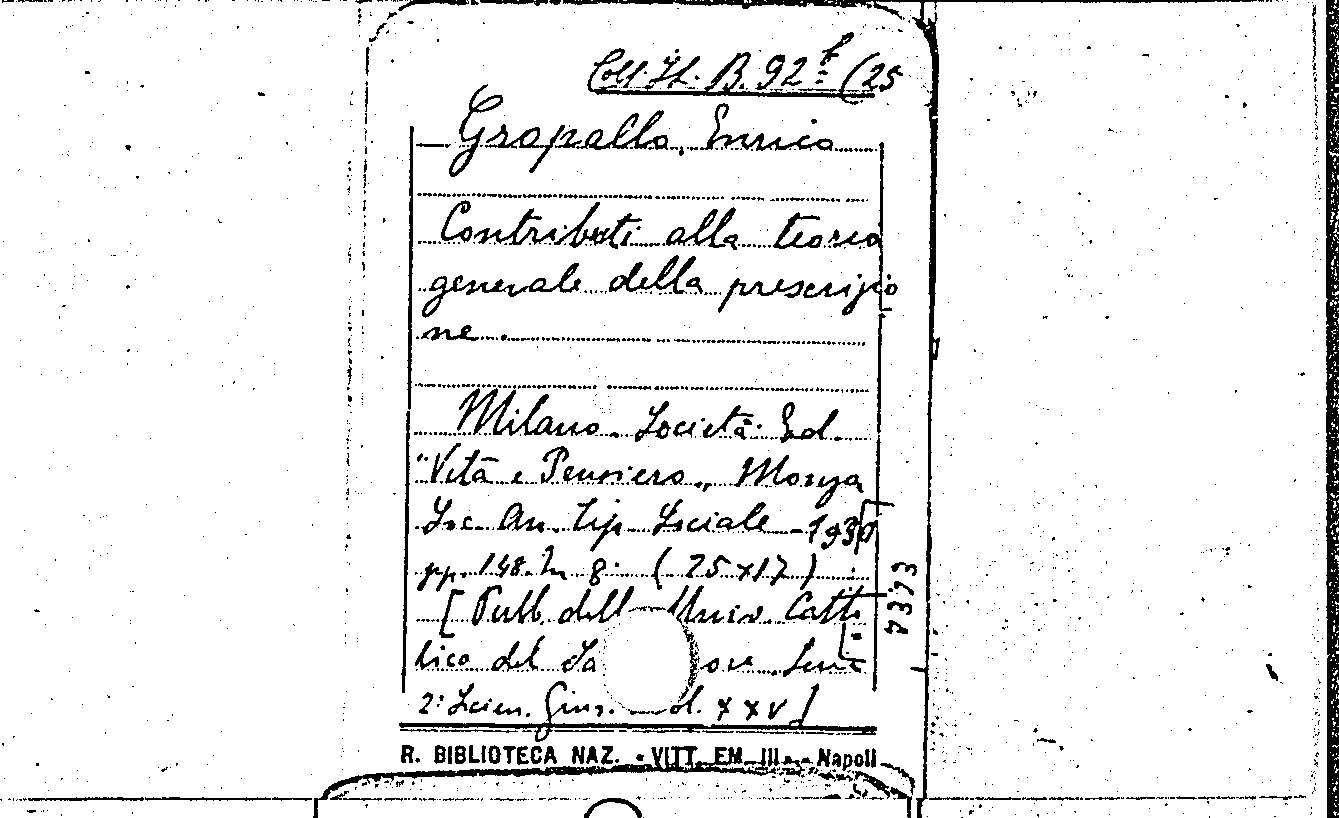 Coll. It. B. 92 f (25
Gropallo, Enrico
Contributi alla teoria
generale della prescrizio
ne.
Milano. Società Ed.
"Vita e Pensiero„ Monza
Soc. An. Tip. Sociale - 1930
pp. 148. In 8° (25x17)
[Pubb. dell Univ. Catto
lico del Sa ore. Serie
2ª Scien. Giur. ol. XXV]
R. BIBLIOTECA NAZ. - VITT. EM. III. - Napoli